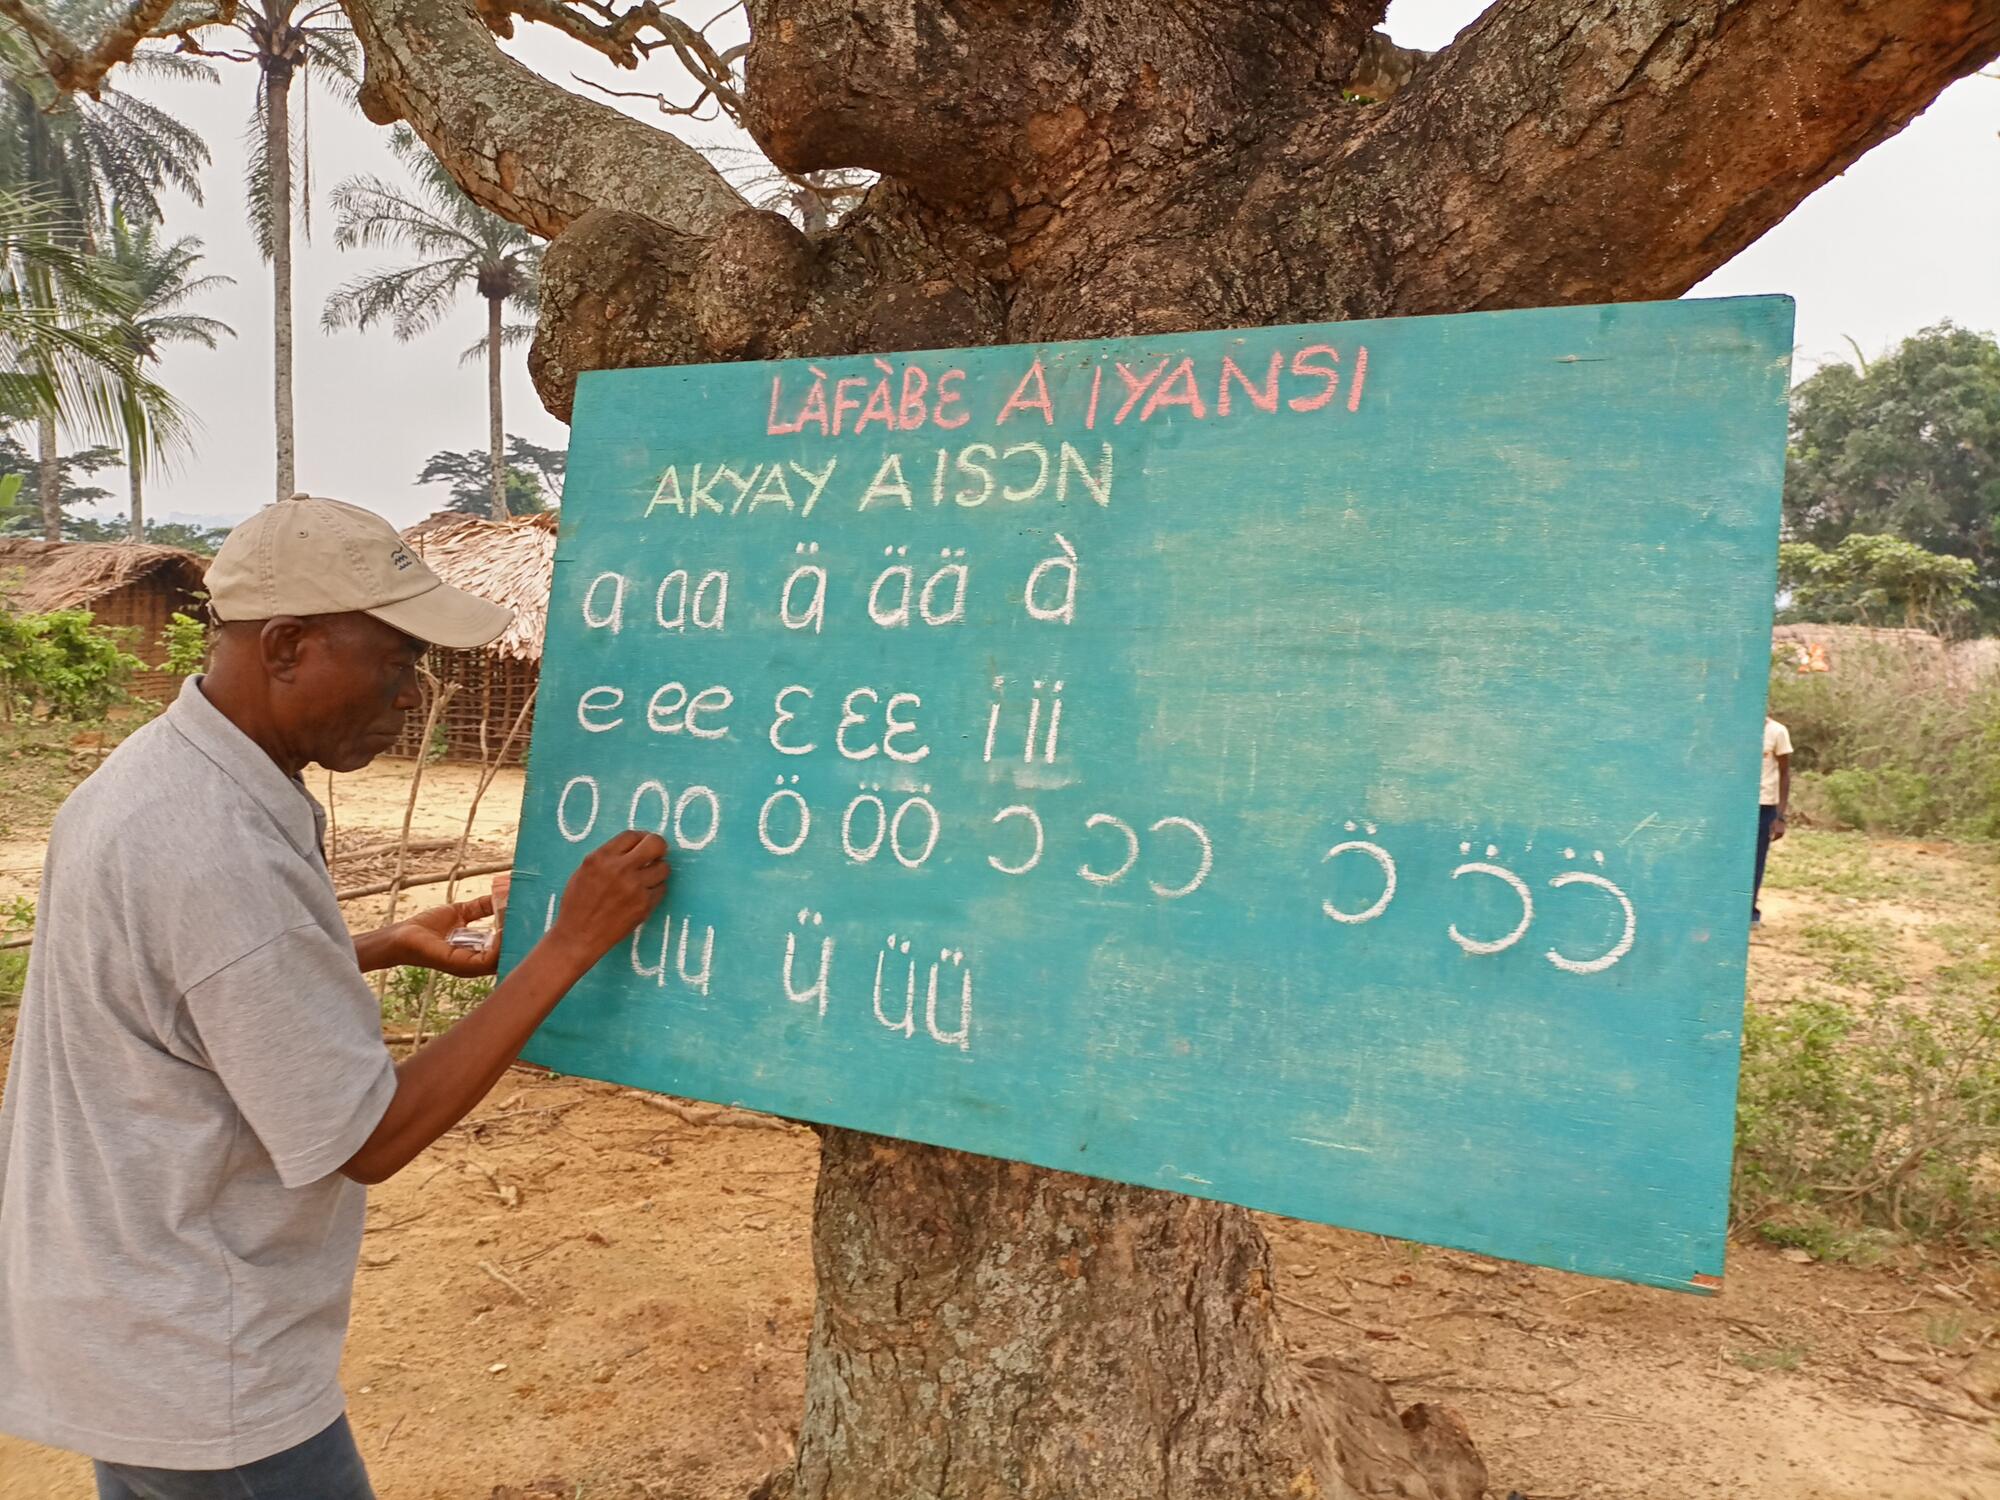 LÀFÀBƐ A IYANSI
AKYAY A ISƆN
a aa ä ää à
e ee ɛ ɛɛ i ii
o oo ö öö ɔ ɔɔ ɔ̈ ɔ̈ɔ̈
uu ü üü